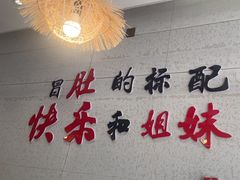 冒肚的标配
快乐和姐妹